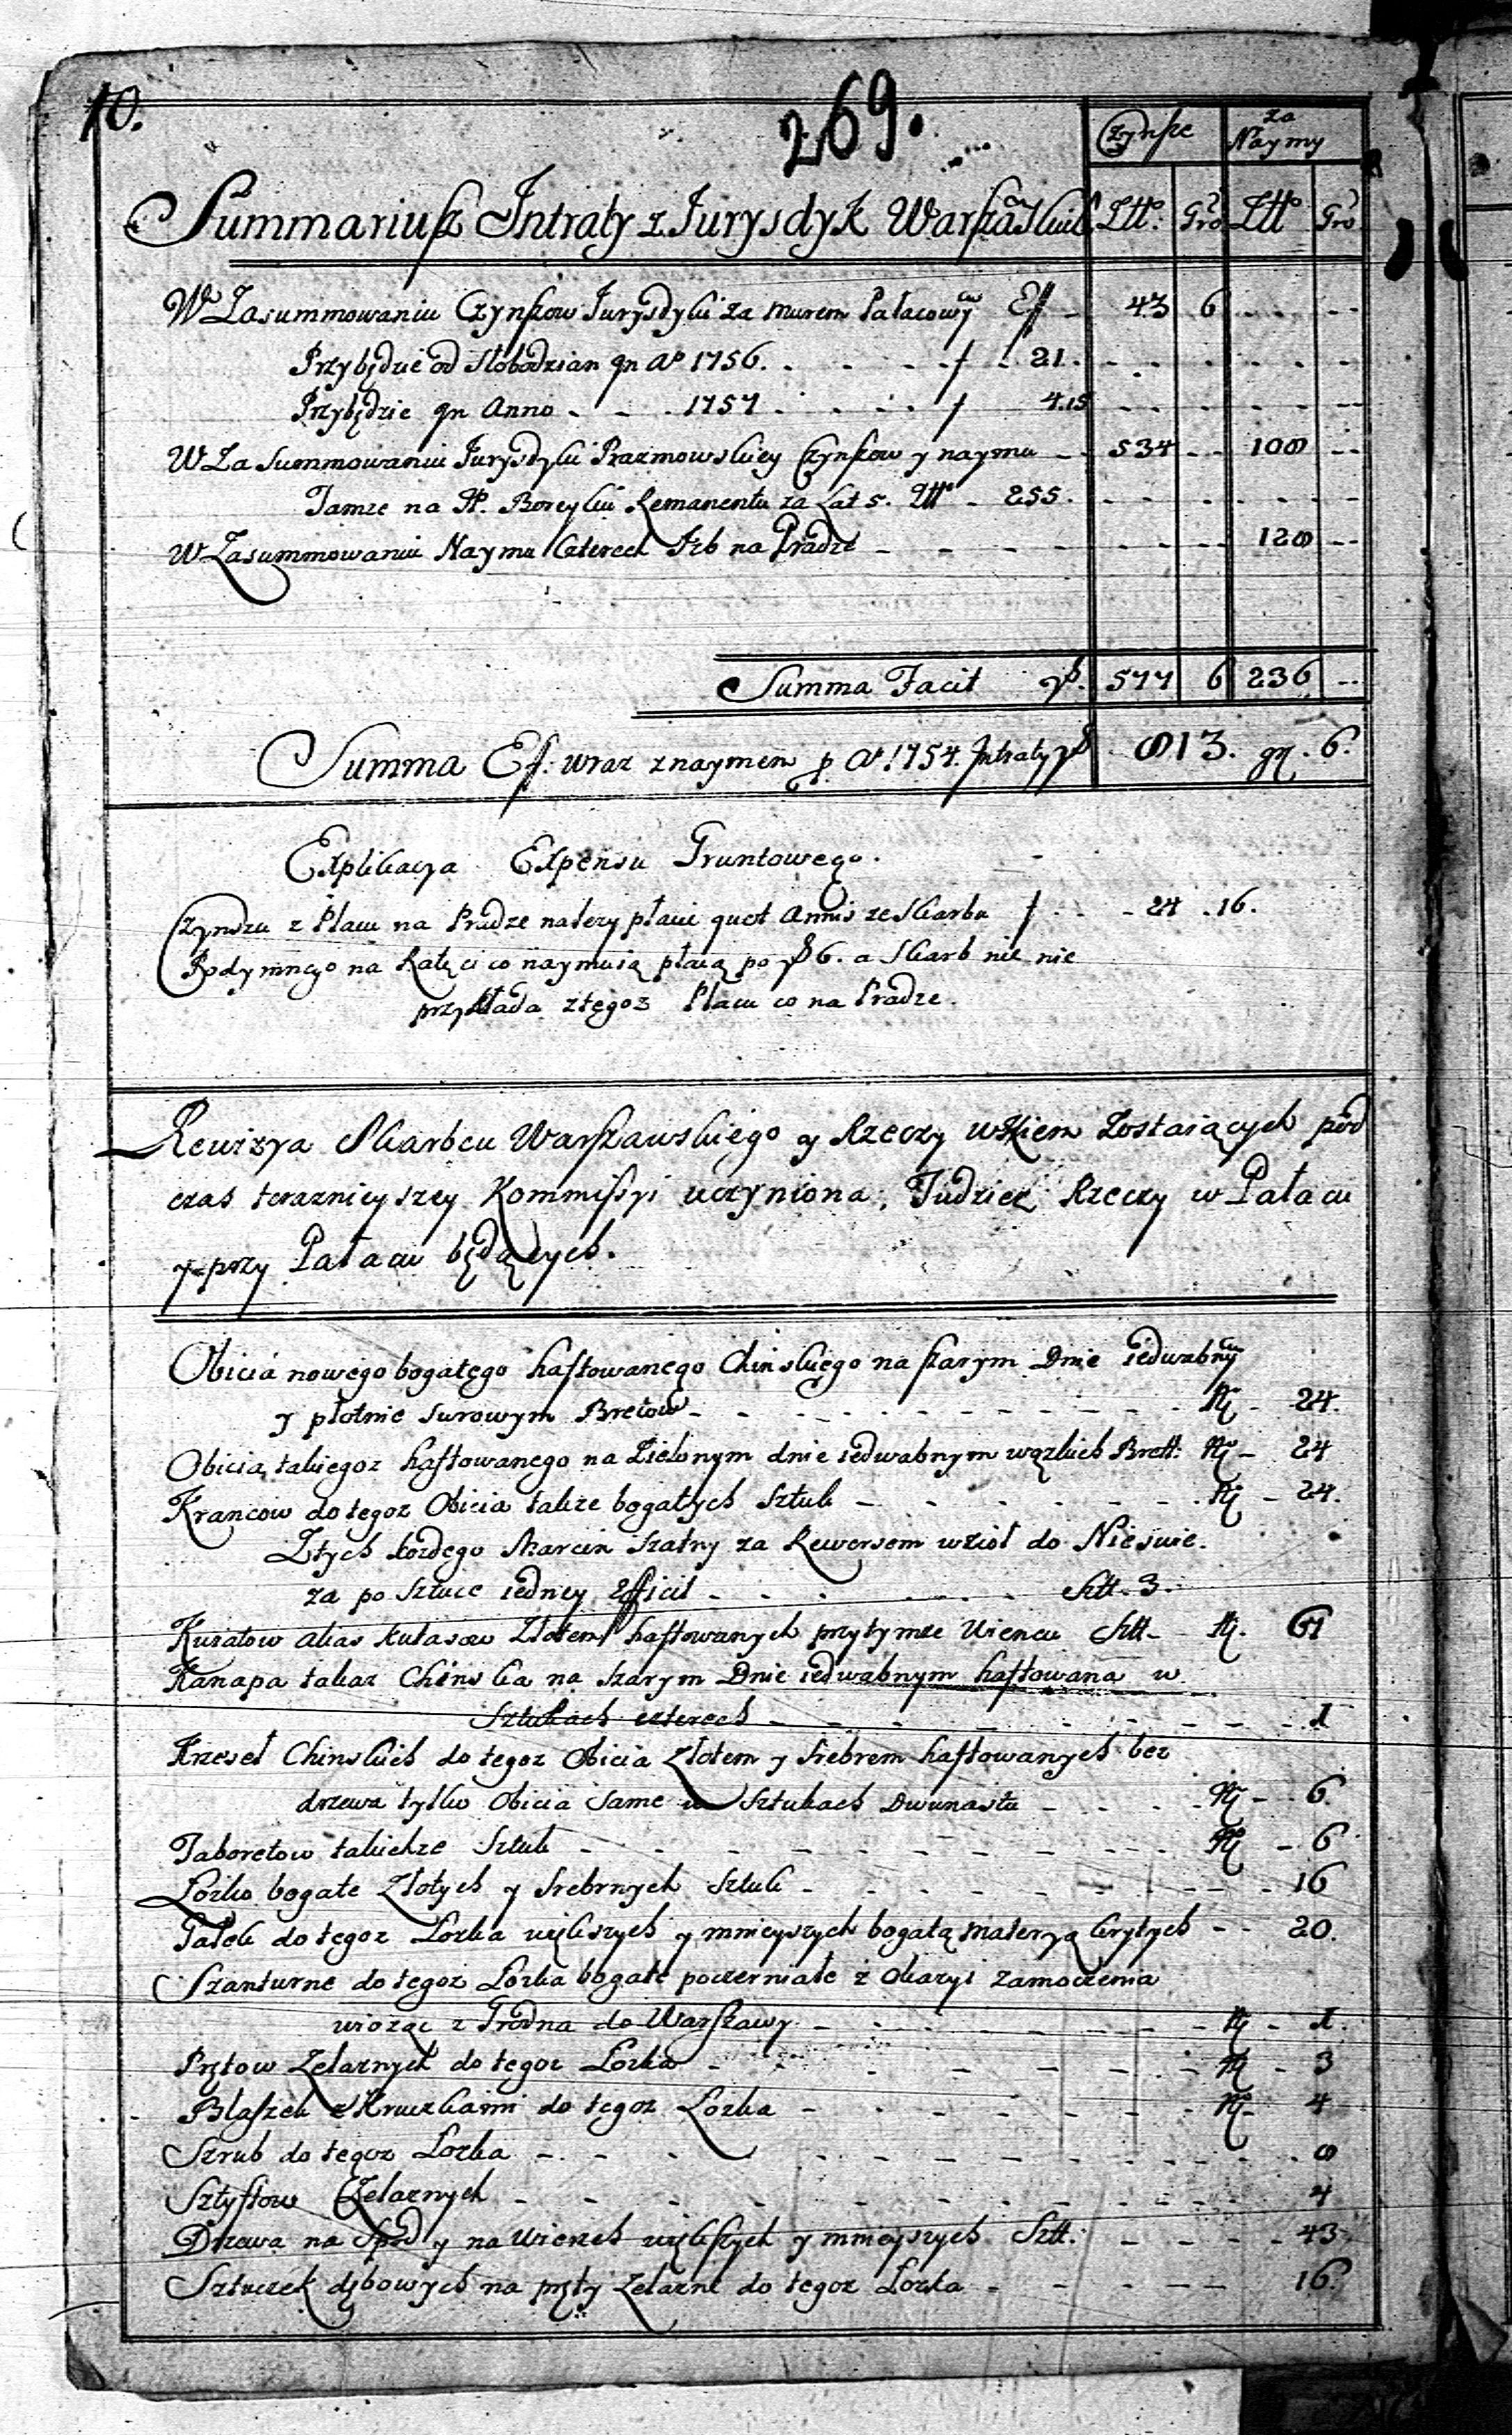 10.
269.
Czynsze
za Naymy
Summariusz Intraty z Jurysdyk Warszawskich Złł. Gro Złł Gro
W Zasummowaniu Czynszow Jurysdyki za murem Pałacowym Eff - 43 6
Przybędzie od Słobodzian in Ao 1756. f 21.
Przybędzie in Anno 1757 f 4.15
W Zasummowaniu Jurysdyki Prazmowskiey Czynszow y naymu - 534 - 108
Tamze na P. Boreyku Remanentu za Lat 5. Złł - 255.
W Zasummowaniu Naymu Czterech Izb na Pradze - 128
Summa Facit f. 577 6 236
Summa Eff: wraz z naymem p. Ao 1754. Intraty f 813. gr. 6.
Explikacya Expensu Gruntowego.
Czynszu z Placu na Pradze nalezy płacic quot Annis ze Skarbu f 24 . 16.
Podymnego na Ratę ci co naymuią płacą po f 6. a Skarb nic nie
przykłada z tegoz Placu co na Pradze.
Rewizya Skarbcu Warszawskiego y Rzeczy w Niem Zostaiących pod
czas teraznieyszey Kommissyi uczyniona, Tudziez Rzeczy w Pałacu
y przy Pałacu będących.
Obicia nowego bogatego haftowanego Chinskiego na szarym Dnie iedwabnym
y płotnie surowym Bretow - No - 24.
Obicia takiegoz haftowanego na Zielonym dnie iedwabnym wązkich Brett: No - 24
Krancow do tegoz Obicia takze bogatych Sztuk - No - 24.
Z tych kozdego Marcin Szatny za Rewersem wzioł do Nieswie.
za po Sztuce iedney Efficit - Sztt. 3.
Kwiatow alias kutasow Złotem haftowanych przytymze Wiencu Sztt - No. 61
Kanapa takaz Chinska na szarym Dnie iedwabnym haftowana w
Sztukach czterech - 1
Krzeseł Chinskich do tegoz Obicia Złotem y Srebrem haftowanych bez
drzewa tylko Obicia same w Sztukach Dwunastu - No - 6.
Taboretow takichze Sztuk - No - 6
Łozko bogate Złotych y Srebrnych Sztuk - 16
Gałek do tegoz Łozka większych y mnieyszych bogatą materyą krytych - 20.
Szanturne do tegoz Łozka bogate poczerniałe z okazyi zamoczenia
wioząc z Grodna do Warszawy - No - 1.
Prętow Zelaznych do tegoz Łozka - No - 3
Blaszek z Kruczkami do tegoz Łozka - No - 4
Szrub do tegoz Łozka - 8
Sztyftow Zelaznych - 4
Drzewa na Spod y na Wierzch większych y mnieyszych Sztt: - 43
Sztuczek dębowych na pręty Zelazne do tegoz Łozka - 16.